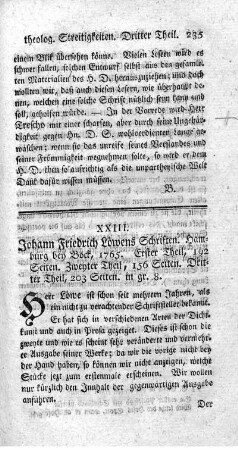 theolog. Streitigkeiten. Dritter Theil. 235
einem Blik übersehen könne. Vielen Lesern wird es
schwer fallen, solchen Entwurf selbst aus den gesamle-
ten Materialien des H. D. herauszuziehen; und doch
wollten wir, daß auch diesen Lesern, wie überhaupt de-
nen, welchen eine solche Schrift nützlich seyn kann und
soll, geholfen würde. — In der Vorrede wird Herr
Trescho mit einer scharfen, aber durch seine Ungebühr-
digkeit gegen Hn. D. S. wohlverdienten Lauge ge-
waschen; wenn sie das unreine seines Verstandes und
seiner Frömmigkeit wegnehmen solte, so wird er dem
H. D. dem so aufrichtig, als die unpartheyische Welt
Dank dafür wissen müssen.
B.
XXIII.
Johann Friedrich Löwens Schriften. Ham-
burg bey Bock, 1765. Erster Theil, 192
Seiten. Zweyter Theil, 156 Seiten. Drit-
ter Theil, 203 Seiten. in gr. 8.
Herr Löwe ist schon seit mehrern Jahren, als
ein nicht zu verachtender Schriftsteller bekannt.
Er hat sich in verschiedenen Arten der Dicht-
kunst und auch in Prosa gezeiget. Dieses ist schon die
zweyte und wie es scheint sehr veränderte und vermehr-
te Ausgabe seiner Werke; da wir die vorige nicht bey
der Hand haben, so können wir nicht anzeigen, welche
Stücke jezt zum erstenmale erscheinen. Wir wollen
nur kürzlich den Innhalt der gegenwärtigen Ausgabe
anführen.
Der